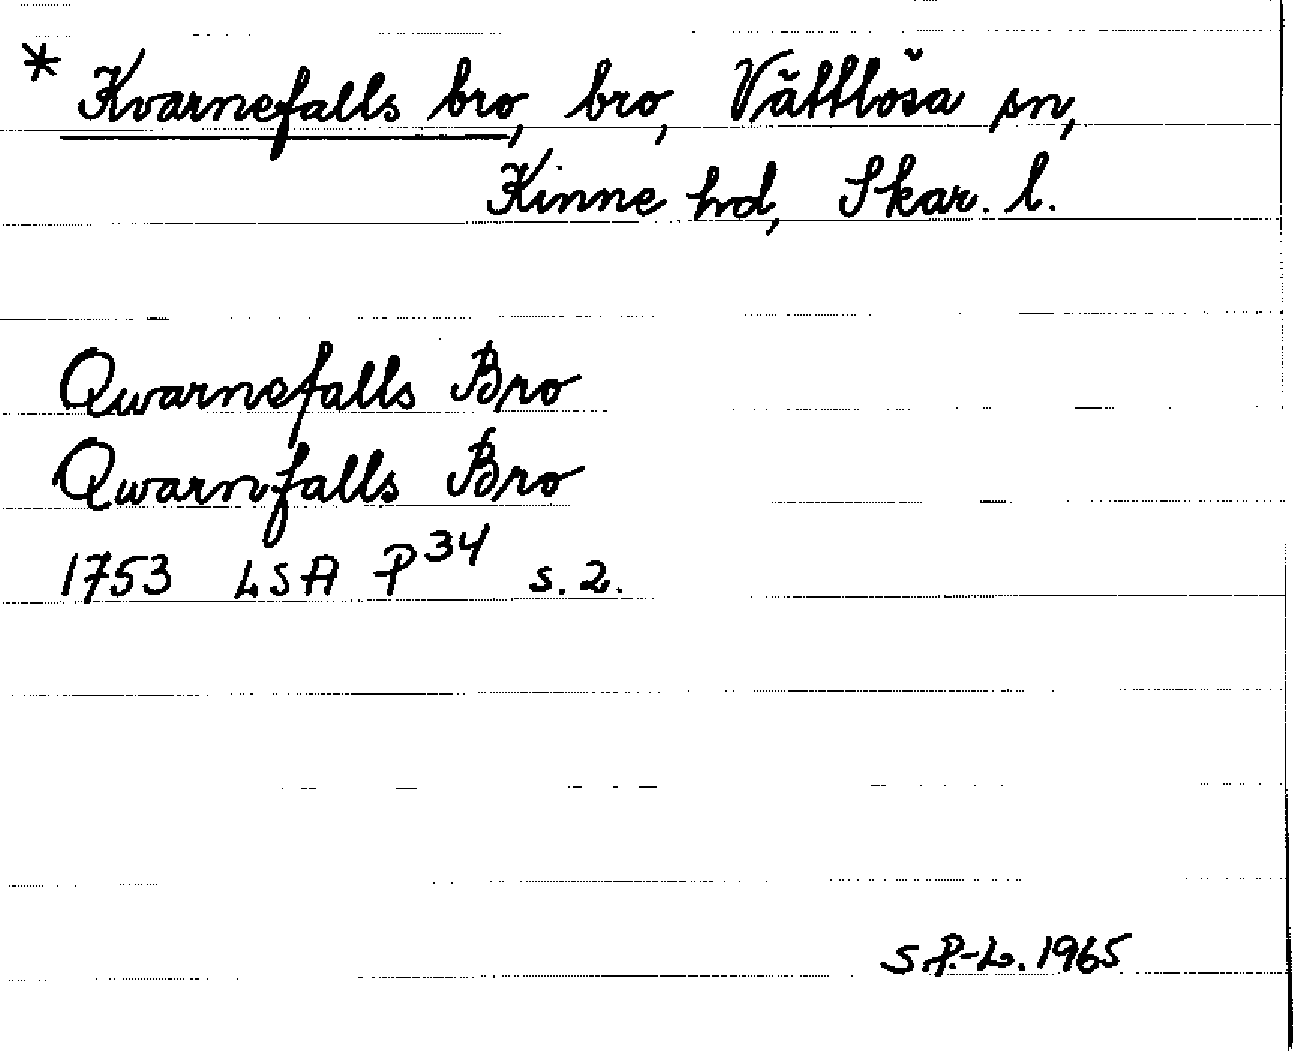 * Kvarnefalls bro, bro, Vättlösa sn,
Kinne hd, Skar. l.
Qwarnefalls Bro
Qwarnfalls Bro
1753 LSA P 34 s. 2.
S.P.-L. 1965